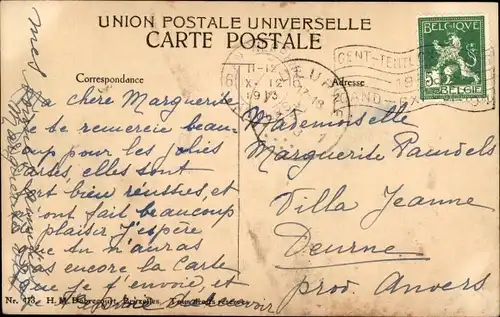 UNION POSTALE UNIVERSELLE
CARTE POSTALE
Correspondance
Adresse
BELGIQUE
5c
BELGIË
11-12
X. 12
1913
GENT-TENT
Ma chère Marguerite
Je te remercie beau-
coup pour les jolies
cartes, elles sont
fort bien réussies, et
m'ont fait beaucoup
plaisir. J'espère
que tu n'auras
pas encore la carte
que je t'envoie, et
recevoir
mes
Mademoiselle
Marguerite Pauwels
Villa Jeanne
Deurne
prov. Anvers
Nr. 418. H. M. Bruxelles. Tous droits réservés